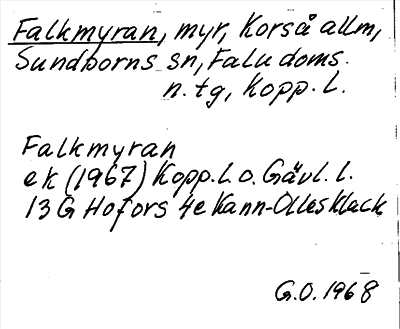 Falkmyran, myr, Korså allm,
Sundborns sn, Falu doms.
n. tg, Kopp. L.
Falkmyran
ek (1967) Kopp. L. o. Gävl. l.
13 G Hofors 4e Kann-Olles Klack
G.O. 1968